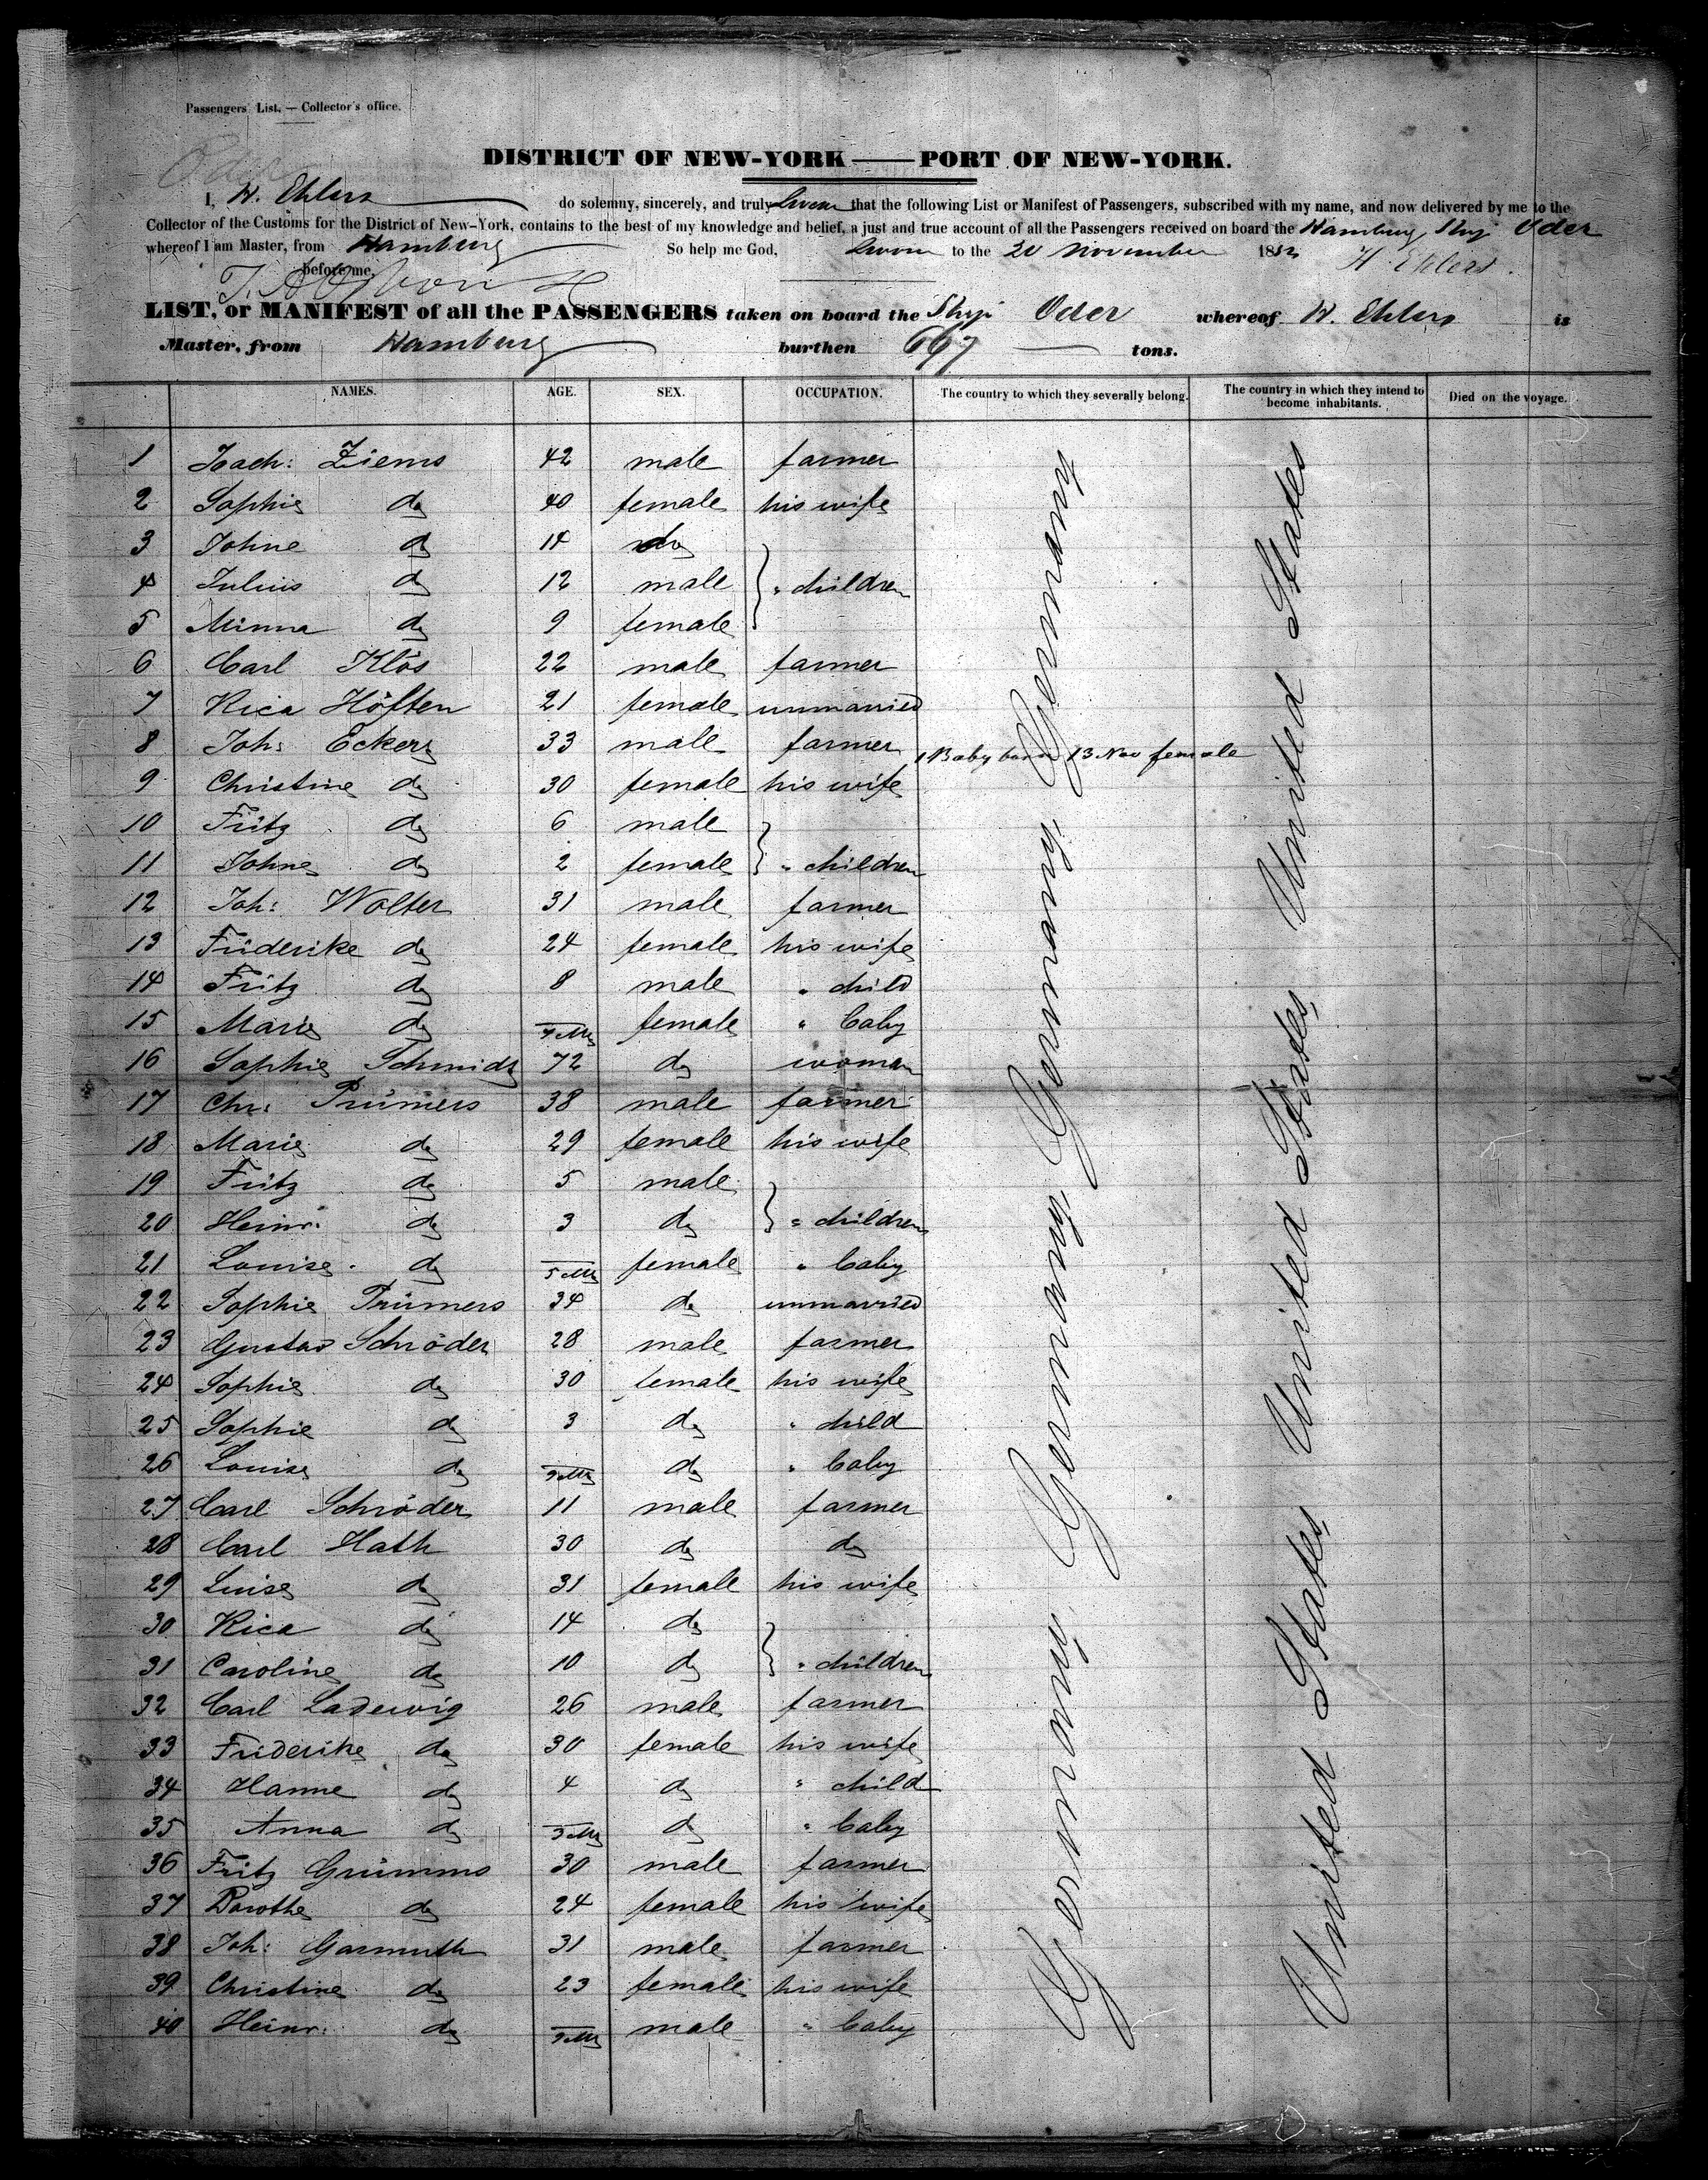 Passengers' List. — Collector's office.
Oder
DISTRICT OF NEW-YORK — PORT OF NEW-YORK.
I, H. Ehlers do solemny, sincerely, and truly Swear that the following List or Manifest of Passengers, subscribed with my name, and now delivered by me to the
Collector of the Customs for the District of New-York, contains to the best of my knowledge and belief, a just and true account of all the Passengers received on board the Hamburg Ship Oder
whereof I am Master, from Hamburg So help me God, Sworn to the 20 November 1852 H. Ehlers.
before me,
LIST, or MANIFEST of all the PASSENGERS taken on board the Ship Oder whereof H. Ehlers is
Master, from Hamburg burthen 667 tons.
NAMES. AGE. SEX. OCCUPATION. The country to which they severally belong. The country in which they intend to become inhabitants. Died on the voyage.
1 Joach: Ziems 42 male farmer
2 Sophie do 40 female his wife
3 Johne do 14 do
4 Julius do 12 male " children
5 Minna do 9 female
6 Carl Klös 22 male farmer
7 Rica Höften 21 female unmarried
8 Joh: Eckers 33 male farmer 1 Baby born 13 Nov female
9 Christine do 30 female his wife
10 Fritz do 6 male
11 Johne do 2 female " children
12 Joh: Wolter 31 male farmer
13 Friderike do 24 female his wife
14 Fritz do 8 male " child
15 Marie do female " baby
16 Sophie Schmidt 72 do woman
17 Chr: Prümers 38 male farmer
18 Marie do 29 female his wife
19 Fritz do 5 male
20 Heinr. do 3 do " children
21 Louise do 5 Ms female " baby
22 Sophie Prümers 34 do unmarried
23 Gustav Schröder 28 male farmer
24 Sophie do 30 female his wife
25 Sophie do 3 do " child
26 Louise do do " baby
27 Carl Schröder 11 male farmer
28 Carl Hath 30 do do
29 Luise do 31 female his wife
30 Rica do 14 do
31 Caroline do 10 do " children
32 Carl Ladewig 26 male farmer
33 Friderike do 30 female his wife
34 Hanne do 4 do " child
35 Anna do do " baby
36 Fritz Grümms 30 male farmer
37 Dorothe do 24 female his wife
38 Joh: Garmuth 31 male farmer
39 Christine do 23 female his wife
40 Heinr: do male " baby
Germany Germany Germany Germany
United States United States United States